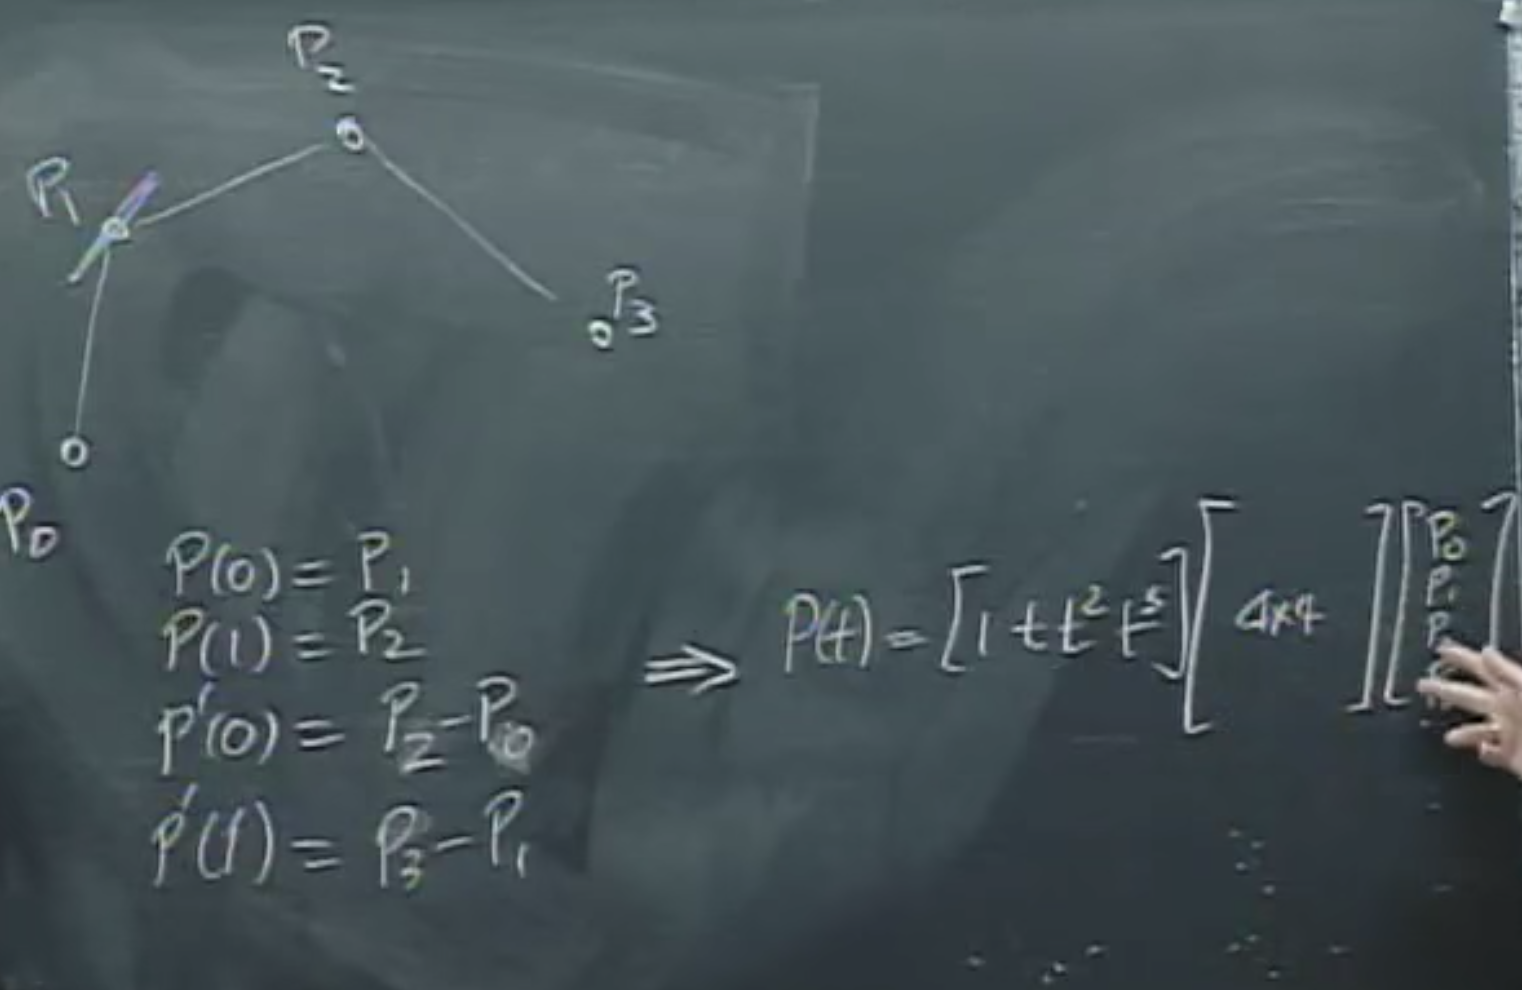 P₂
P₁
P₃
P₀
P(0) = P₁
P(1) = P₂
P'(0) = P₂ - P₀
P'(1) = P₃ - P₁
⇒ P(t) = [1 t t² t³] [4x4] [P₀ P₁ P